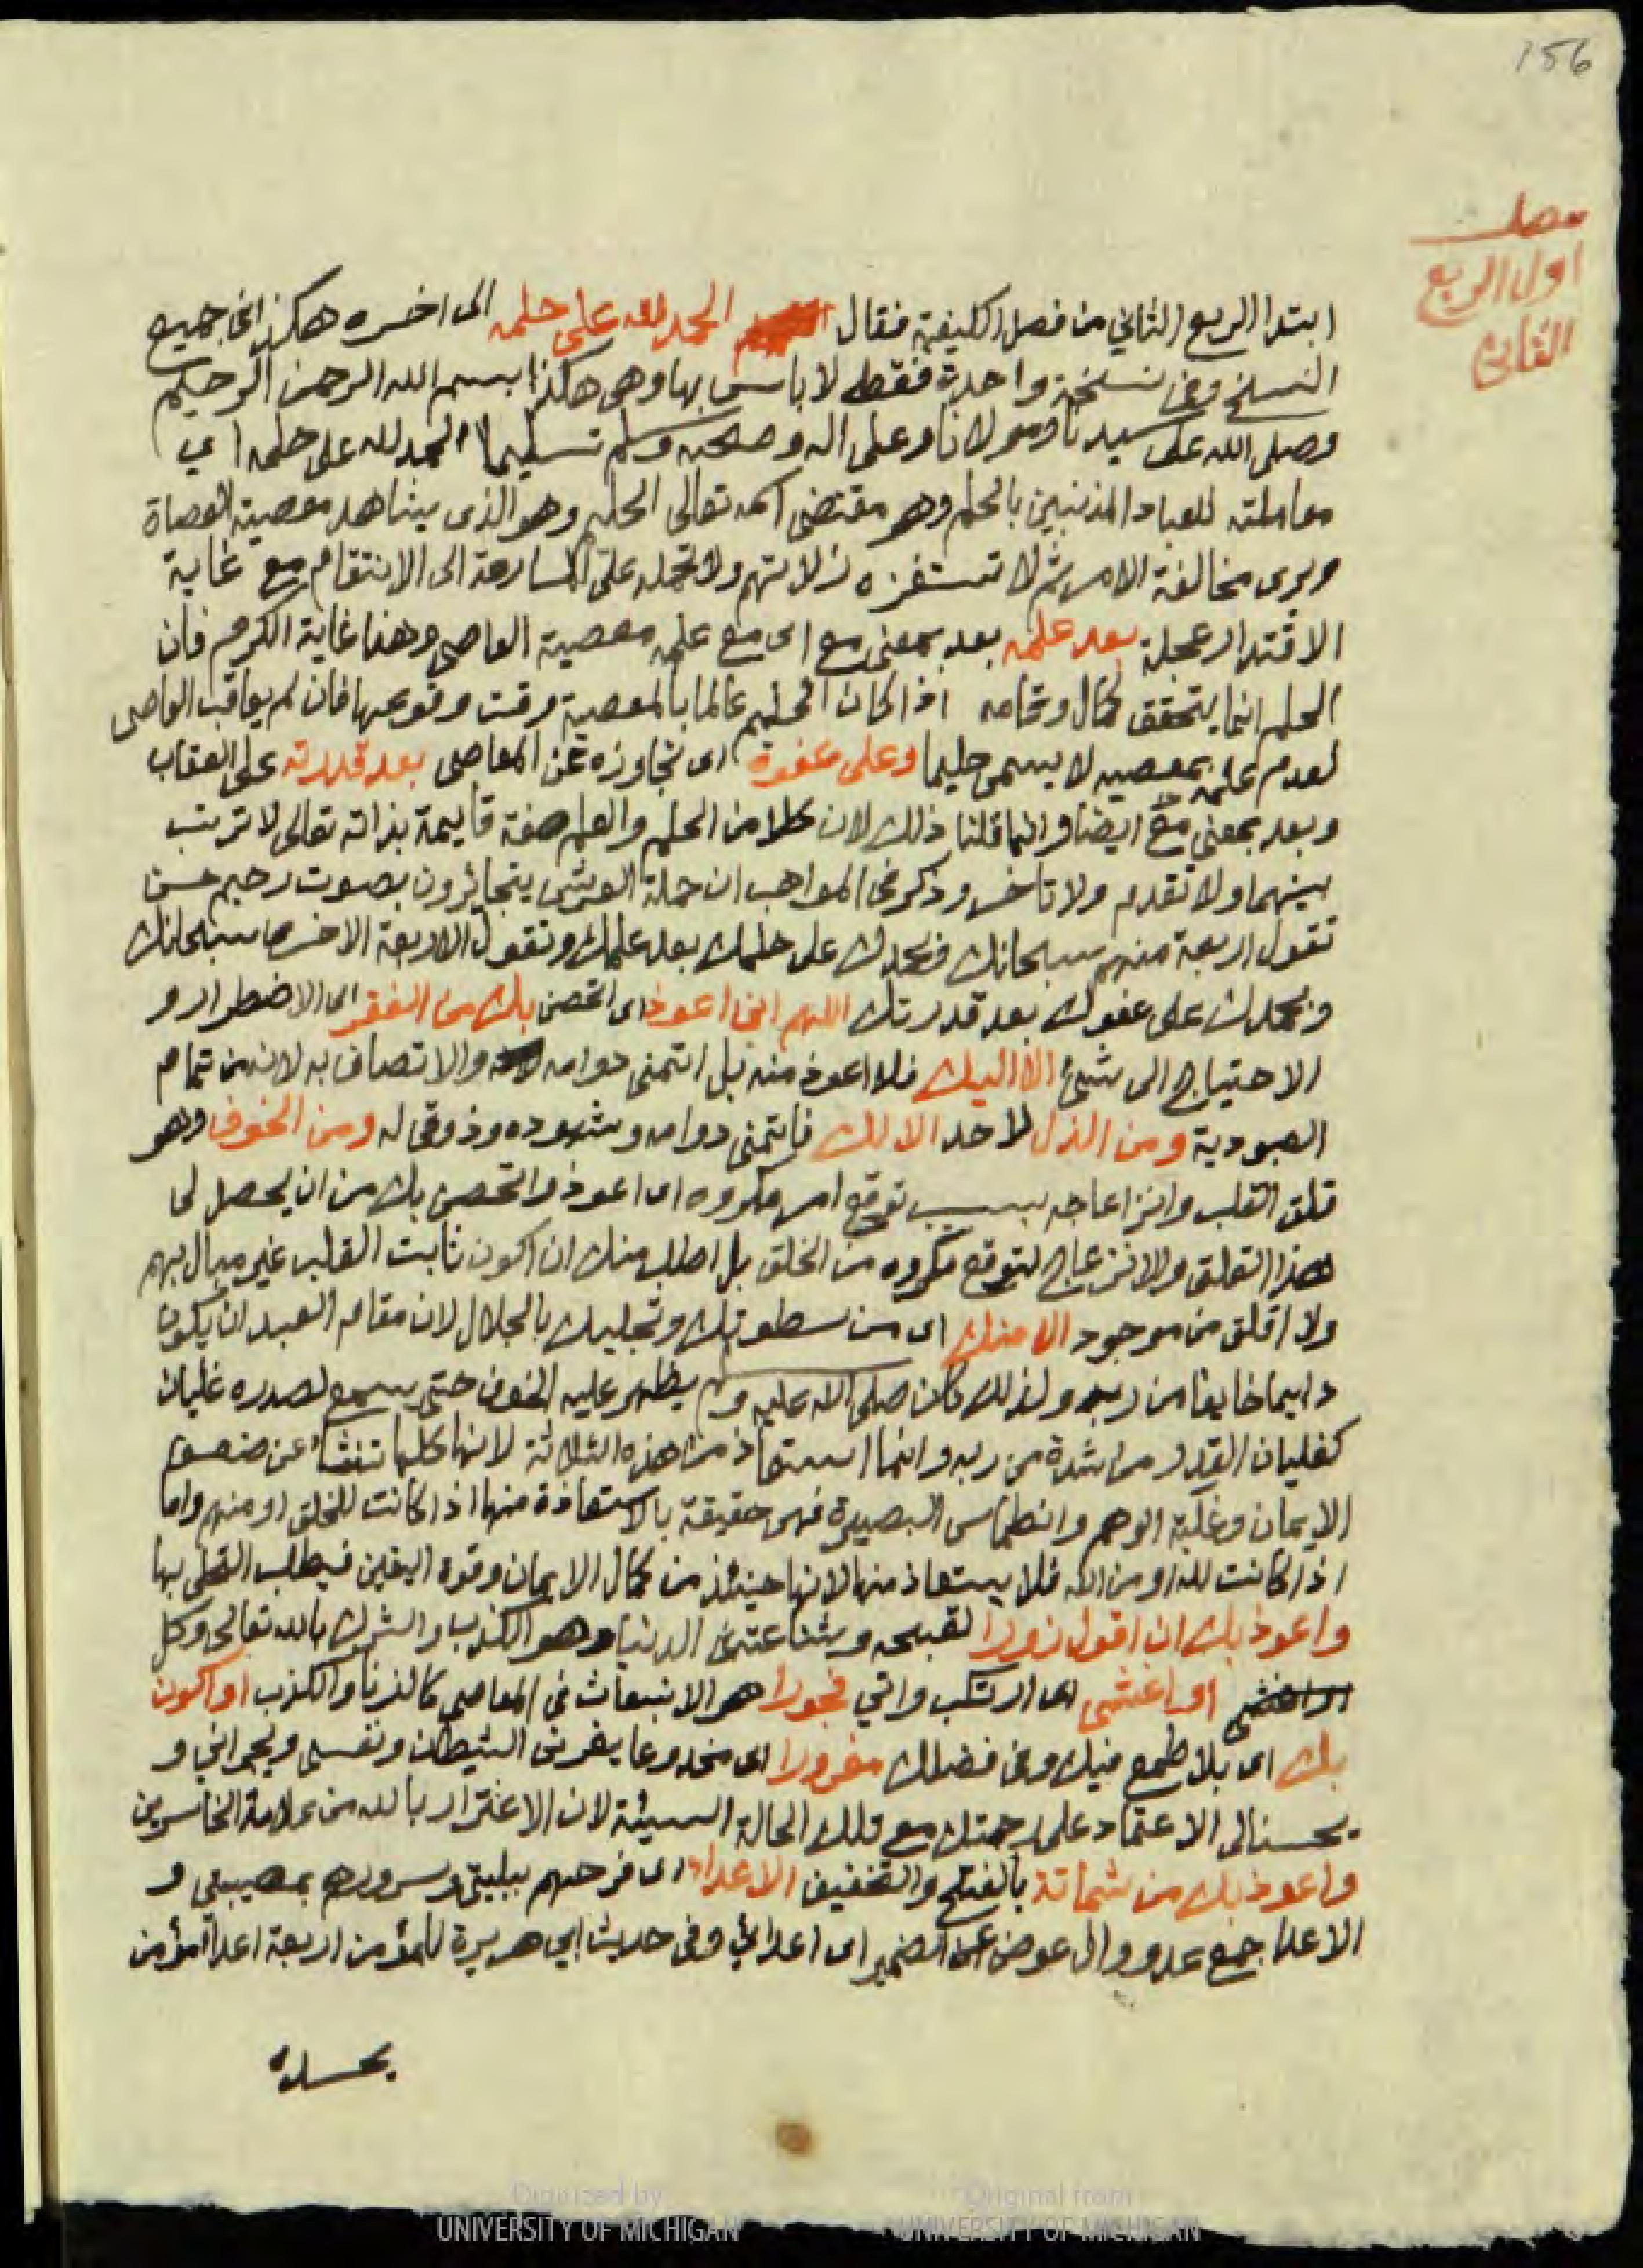 156
مصلـ
اول الربع
الثاني
ابتدا الربع الثاني من فصل الكيفية فقال الحمد لله على حلمه الى اخره هكذا في جميع
النسخ وفي نسخة واحدة فقط لا باس بها وهي هكذا بسم الله الرحمن الرحيم
وصلى الله على سيدنا ومولانا وعلى اله وصحبه وسلم تسليما الحمد لله على حلمه اي
معاملته للعباد المذنبين بالحلم وهو مقتضى اسمه تعالى الحليم وهو الذى يشاهد معصية العصاة
ويرى مخالفة الامر ثم لا تستفزه زلاتهم ولا تحمله على المسارعة الى الانتقام مع غاية
الاقتدار عجلة بعد علمه بعد بمعنى مع اى مع علمه معصية العاصى وهذا غاية الكرم فان
الحلم انما يتحقق كمال وتمامه اذا كان الحليم عالما بالمعصية وقت وقوعها فان لم يعاقب العاصى
لعدم علمه بمعصيه لا يسمى حليما وعلى عفوه اى تجاوزه عن المعاصى بعد قدرته على العقاب
وبعد بمعنى مع ايضا وانما قلنا ذلك لان كلا من الحلم والعلم صفة قايمة بذاته تعالى لا ترتب
بينهما ولا تقدم ولا تاخر وذكر في المواهب ان حملة العرش يتجائرون بصوت رخيم حسن
تقول اربعة منهم سبحانك وبحمدك على حلمك بعد علمك وتقول الاربعة الاخر سبحانك
وبحمدك على عفوك بعد قدرتك اللهم اني اعوذ اى اتحصن بك من الفقر اى الاضطرار و
الاحتياج الى شئ الا اليك فلا اعوذ منه بل اتمنى دوامه والاتصاف به لانه من تمام
العبودية ومن الذل لاحد الا لك فاتمنى دوامه وشهوده وذوقى له ومن الخوف وهو
قلق القلب وانزعاجه بسبب توقع امر مكروه اى اعوذ واتحصن بك من ان يحصل لى
هذا القلق والانزعاج لتوقع مكروه من الخلق بل اطلب منك ان اكون ثابت القلب غير مبال بهم
ولا اقلق من موجود الا منك اى من سطوتك وتجليك بالجلال لان مقام العبد ان يكون
دايما خايفا من ربه ولذلك كان صلى الله عليه وسلم يظهر عليه الخوف حتى يسمع لصدره غليان
كغليان القدر من شدة من ربه وانما استعاذ من هذه الثلاثة لانها كلها تنشأ عن ضعف
الايمان وغلبة الوهم وانطماس البصيرة فهى حقيقة بالاستعاذة منها اذا كانت للخلق او منهم واما
اذا كانت لله او من الله فلا يستعاذ منها لانها حينئذ من كمال الايمان وقوة اليقين فيطلب التحلى بها
واعوذ بك ان اقول زورا لقبحه وشناعته في الدنيا وهو الكذب والشرك بالله تعالى وكل
او اغشى اى ارتكب واتي فجورا هو الانبعاث في المعاصى كالزنا والكذب او اكون
بك اى بلا طمع فيك وفي فضلك مغرورا اى مخدوعا يغرنى الشيطان ونفسى ويجراني و
يحسنالى الاعتماد على رحمتك مع تلك الحالة السيئة لان الاغترار بالله من علامة الخاسرين
واعوذ بك من شماتة بالفتح والتخفيف الاعداء اى فرحهم ببليتى وسرورهم بمصيبتى و
الاعدا جمع عدو وال عوض عن الضمير اى اعدائي وفى حديث ابي هريرة للمؤمن اربعة اعدا مؤمن
يحسده
Digitized by
UNIVERSITY OF MICHIGAN
Original from
UNIVERSITY OF MICHIGAN